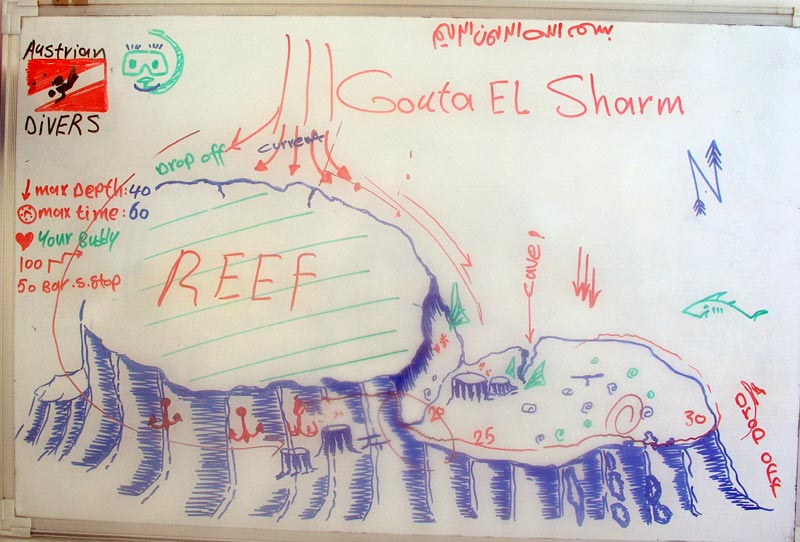 بسم الله الرحمن الرحيم
Austrian
DiVERS
Gouta EL Sharm
current
Drop off
N
max Depth: 40
max time: 60
Your Buddy
100
50 Bar.s.stop
REEF
cave!
20
25
30